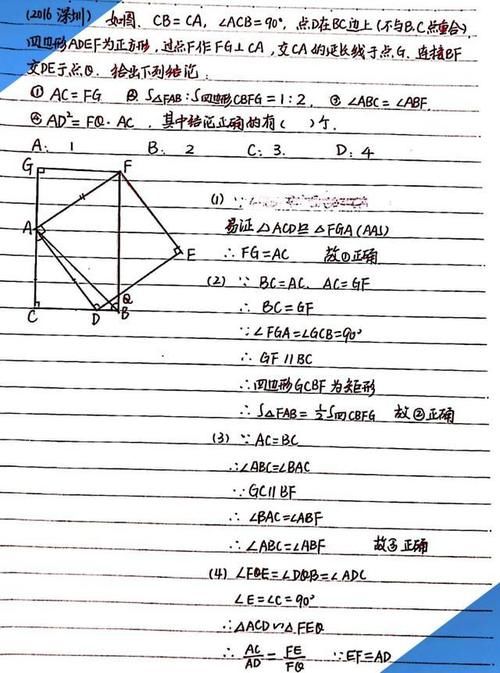 (2016 深圳) 如图, CB=CA, ∠ACB=90°, 点D在BC边上(不与B.C点重合)
四边形ADEF为正方形, 过点F作FG⊥CA, 交CA的延长线于点G. 连接BF
交DE于点Q. 给出下列结论:
① AC=FG ② S△FAB:S四边形CBFG=1:2. ③ ∠ABC=∠ABF.
④ AD²=FQ·AC, 其中结论正确的有 ( ) 个.
A. 1 B. 2 C: 3. D: 4
G F
A E
C D Q B
(1) ∵
易证△ACD≌△FGA (AAS)
∴ FG=AC 故①正确
(2) ∵ BC=AC. AC=GF
∴ BC=GF
∵∠FGA=∠GCB=90°
∴ GF∥BC
∴四边形GCBF为矩形
∴ S△FAB=½S四CBFG 故②正确
(3) ∵ AC=BC
∴∠ABC=∠BAC
∵ GC∥BF
∴ ∠BAC=∠ABF
∴ ∠ABC=∠ABF 故③正确
(4) ∠FQE=∠DQB=∠ADC
∠E=∠C=90°
∴△ACD∽△FEQ
∴ AC/AD = FE/FQ ∵EF=AD